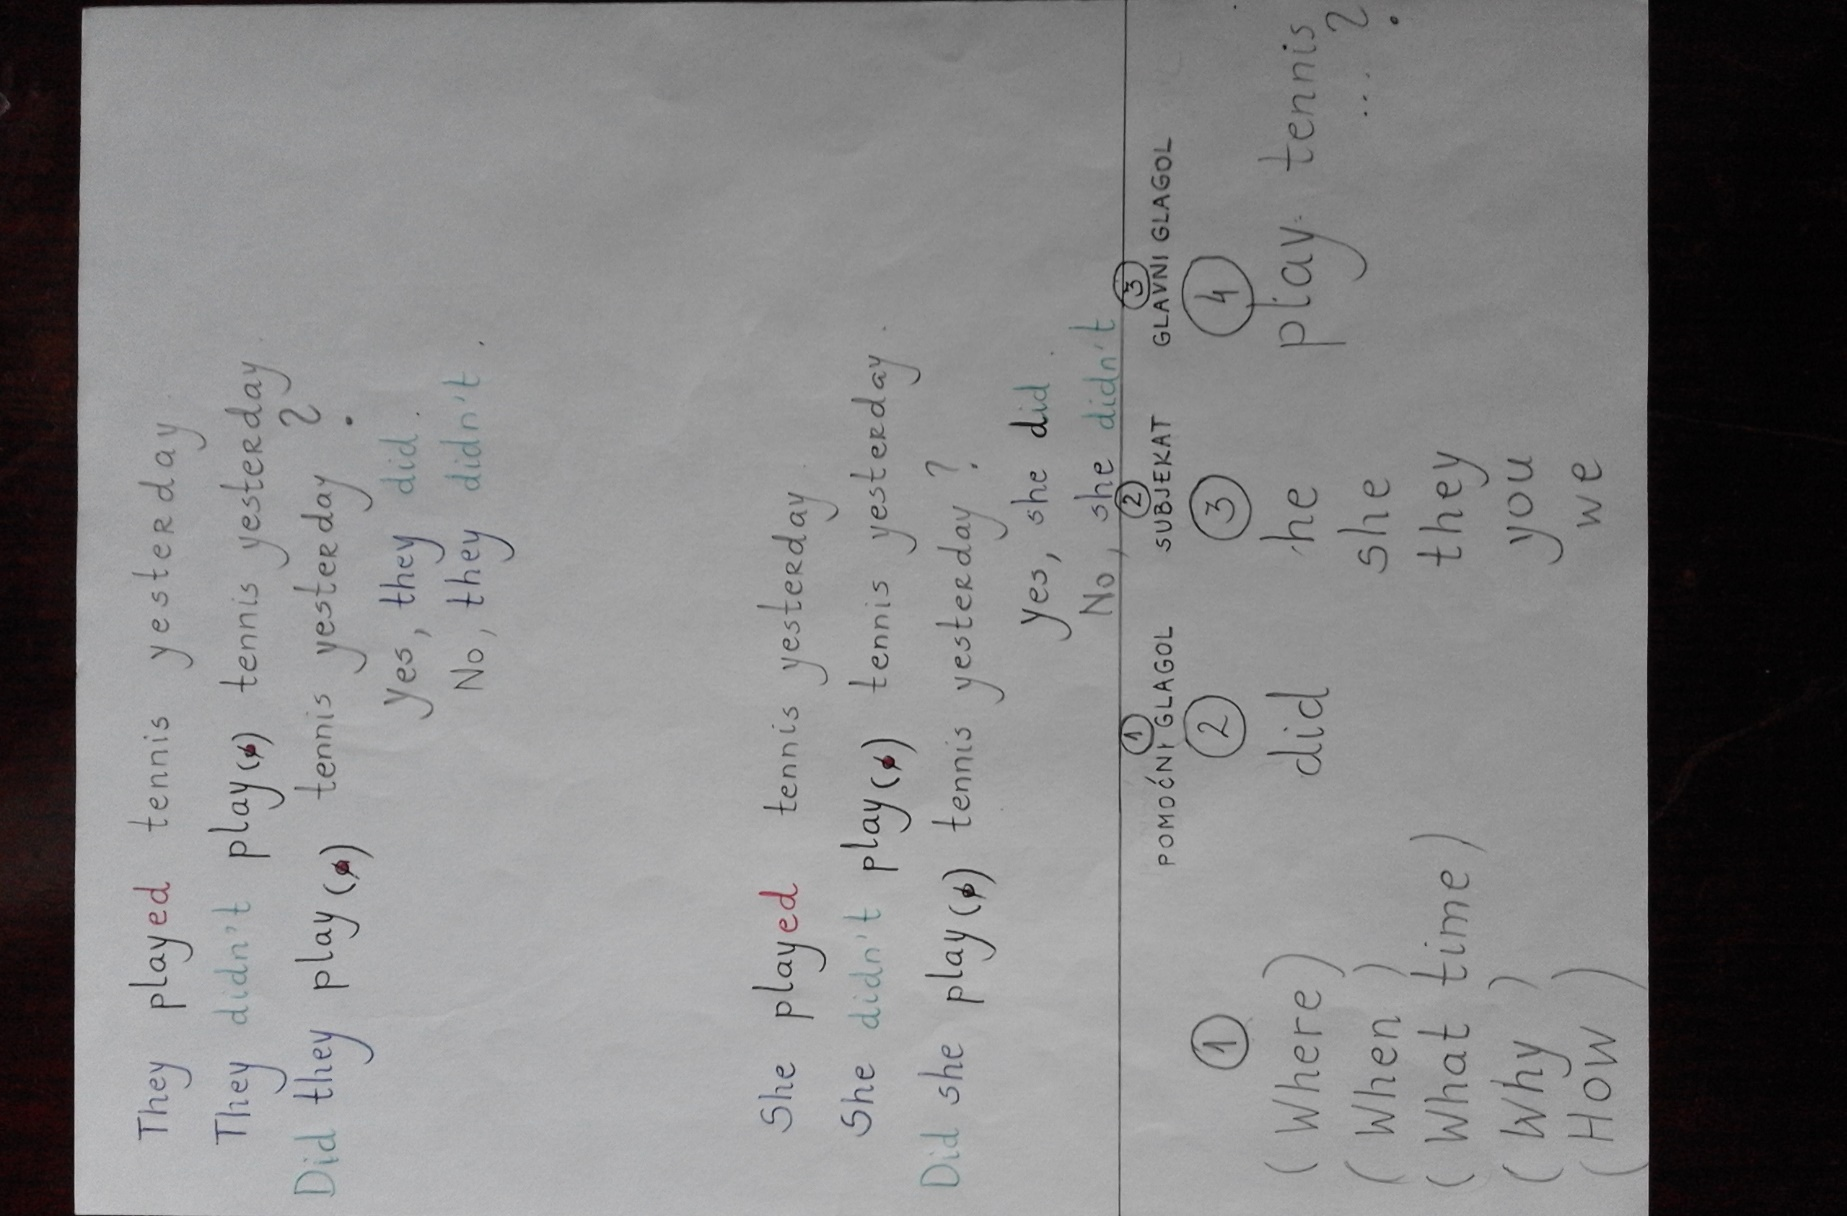 They played tennis yesterday.
They didn't play(ø) tennis yesterday.
Did they play(ø) tennis yesterday?
Yes, they did.
No, they didn't.
She played tennis yesterday
She didn't play(ø) tennis yesterday.
Did she play(ø) tennis yesterday?
Yes, she did.
No, she didn't
① ② ③
POMOĆNI GLAGOL SUBJEKAT GLAVNI GLAGOL
① ② ③ ④
(Where) did he play tennis
(When) she ....?
(What time) they
(Why) you
(How) we